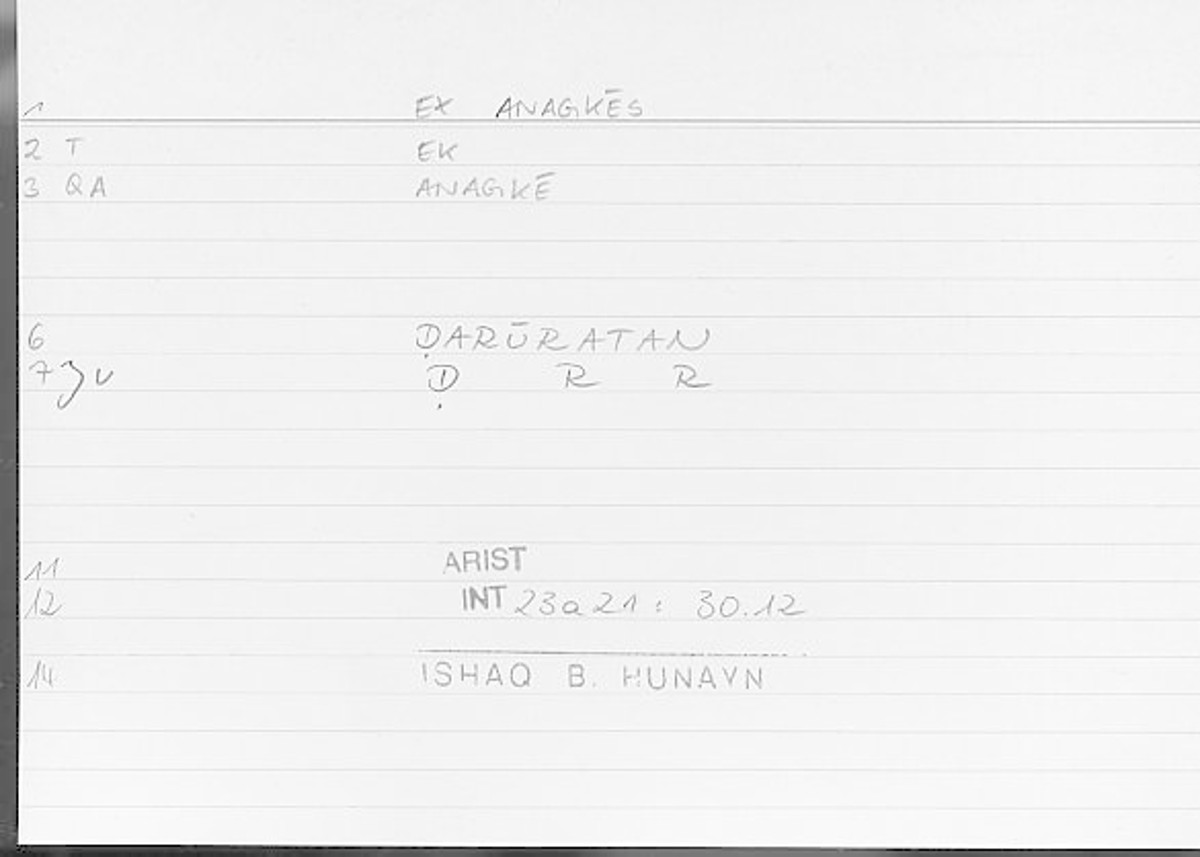 1 EX ANAGKĒS
2 T EK
3 QA ANAGKĒ
6 ḌARŪRATAN
7 Ḍ R R
11 ARIST
12 INT 23a21 : 30.12
14 ISHAQ B. HUNAYN